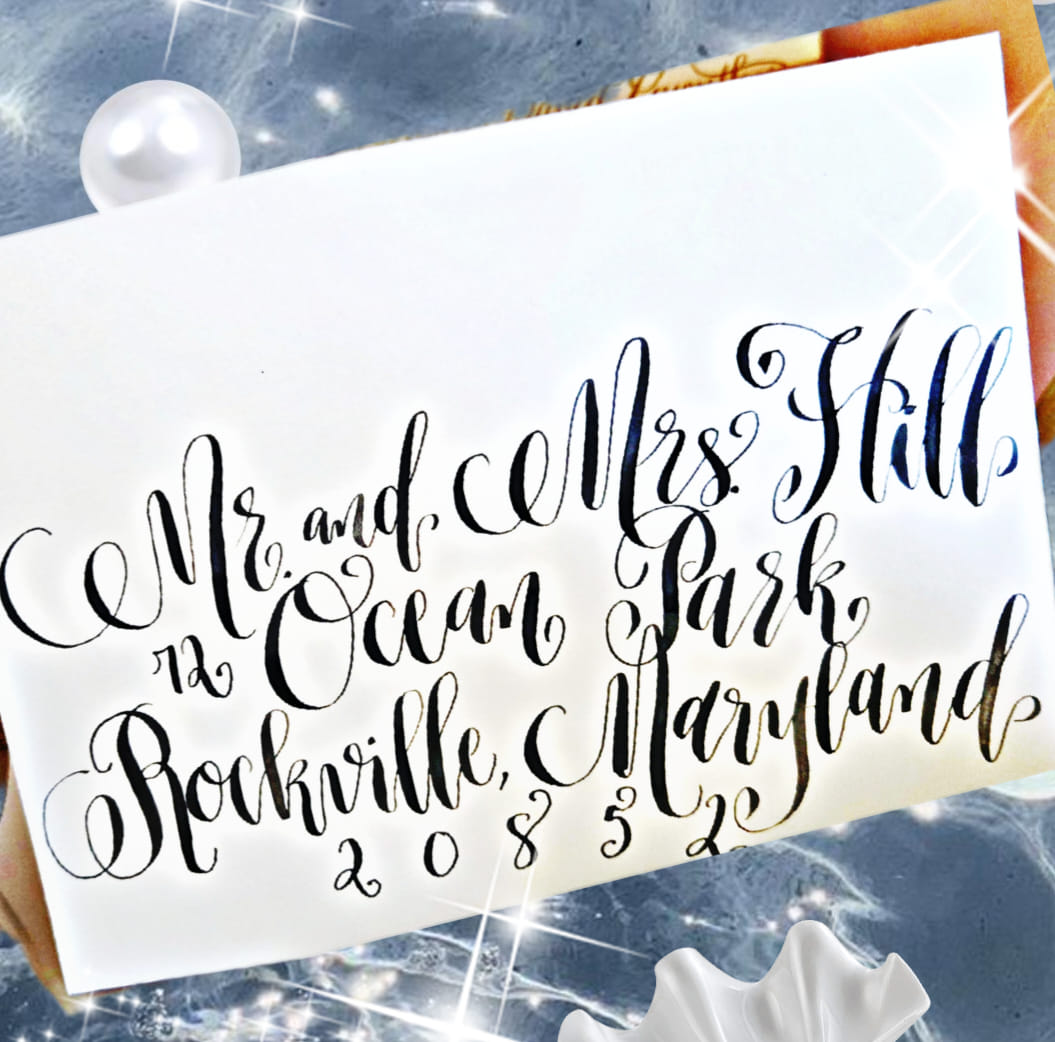 Mr. and Mrs. Hill
72 Ocean Park
Rockville, Maryland
20852